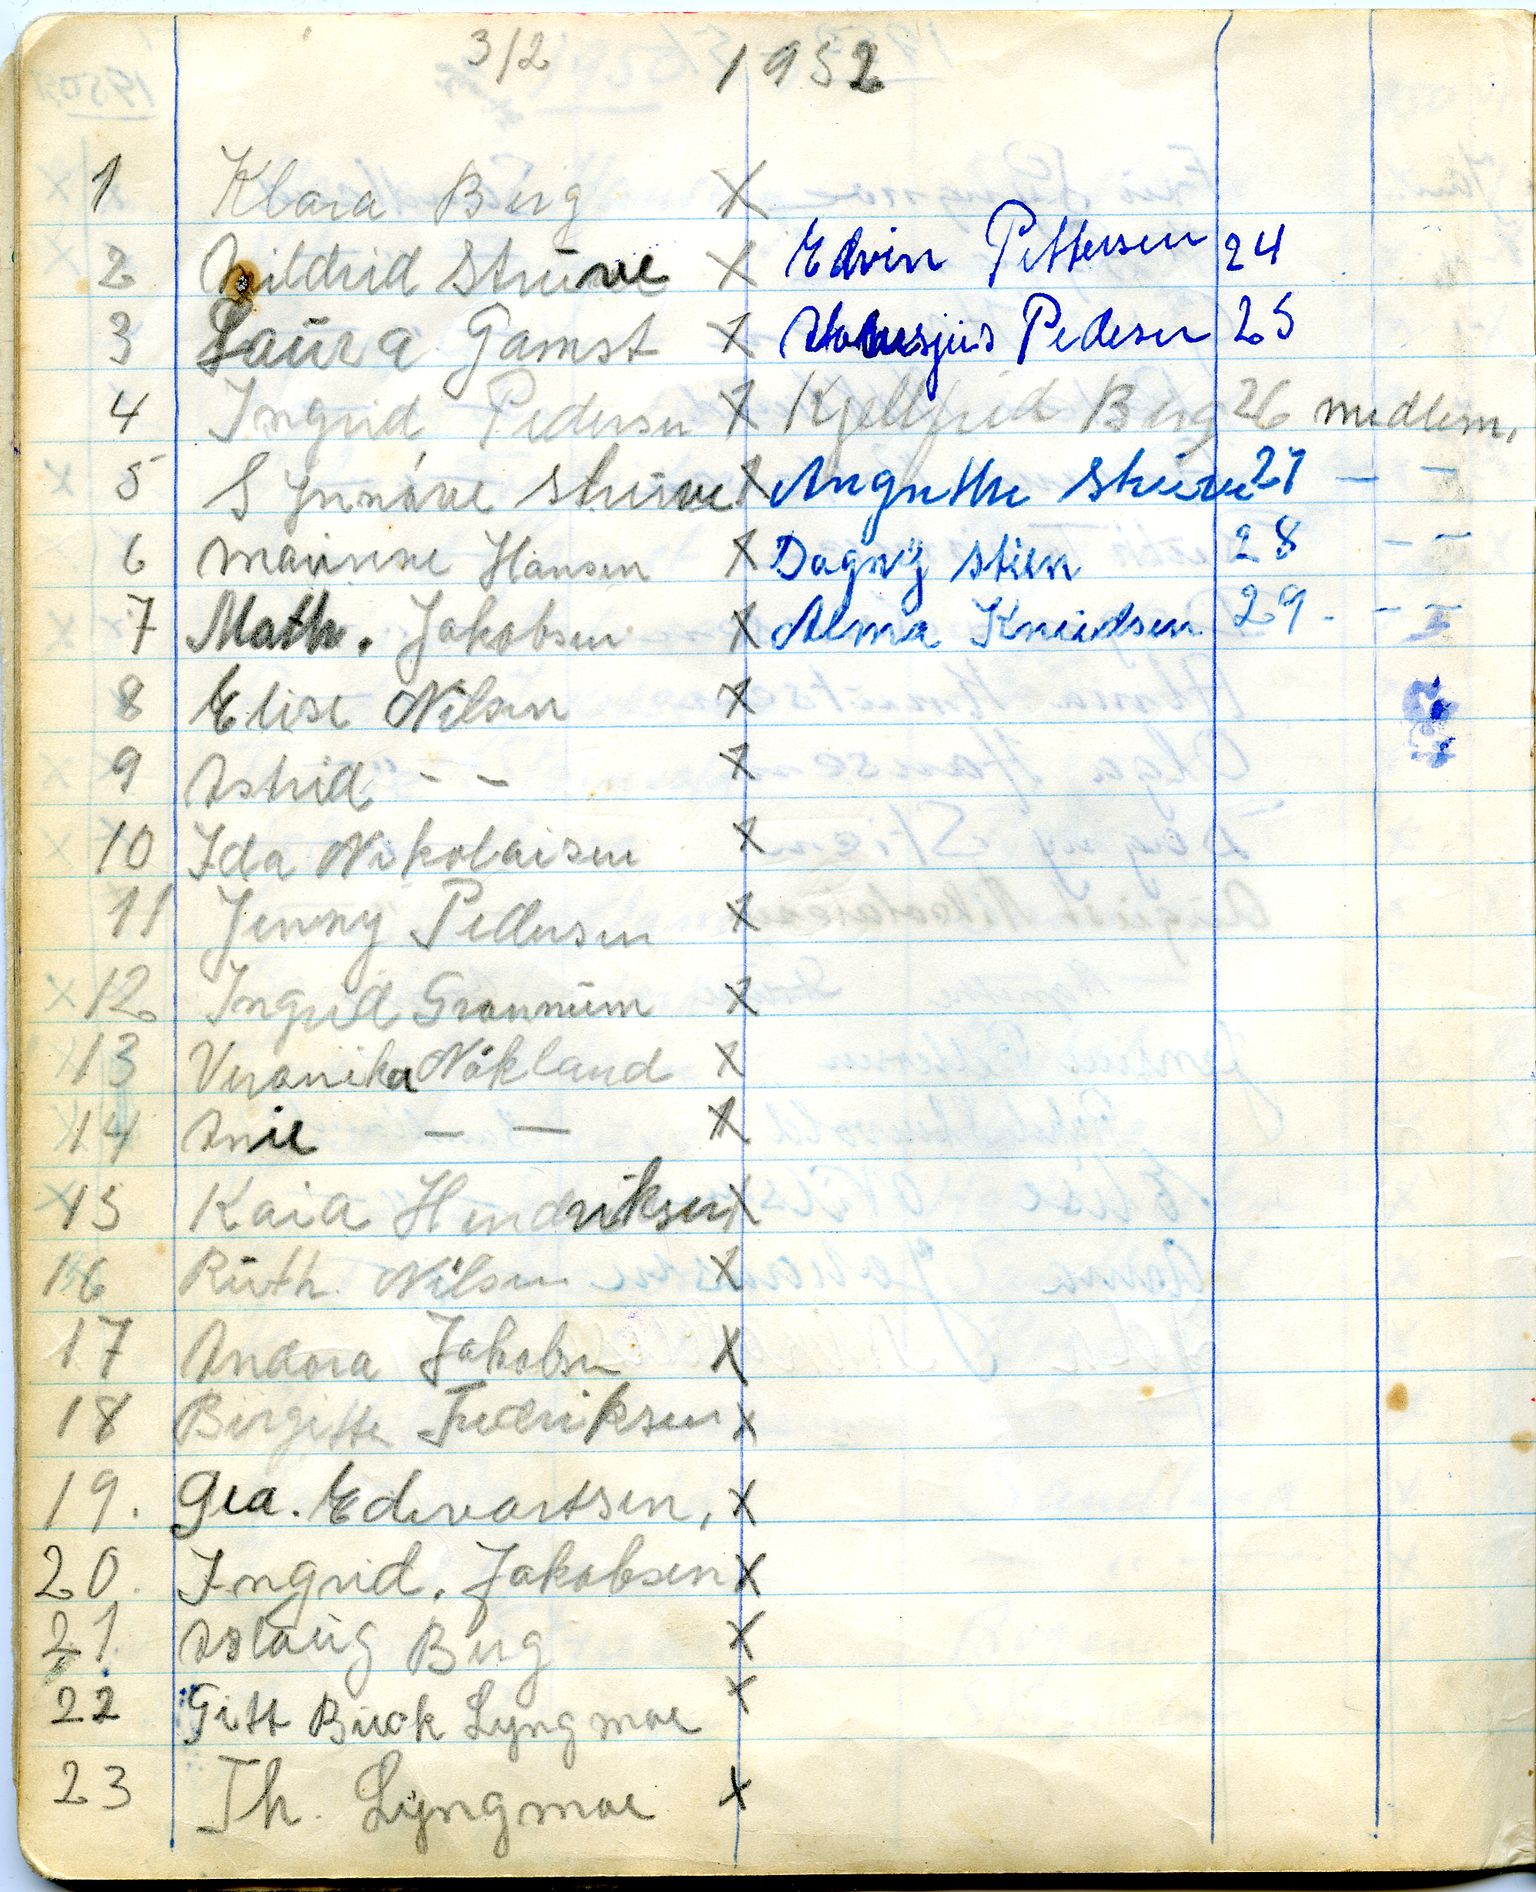 3/2 1952
1 Klara Berg X
2 Mildrid Strüve X Edvin Pettersen 24
3 Laüra Gamst X Pedersen 25
4 Ingrid Pedersen X Kjellfrid Berg 26 medlem.
5 Synnóve Strüve X Angnethe Strüve 27 — –
6 Hansen X Dagny Stien 28 – –
7 Math. Jakobsen X Alma Knüdsen 29. - –
8 Elise Nilsen X
9 Astrid - - X
10 Ida Nikolaisen X
11 Jenny Pettersen X
12 Ingrid Grannüm X
13 Veronika Nökland X
14 – – X
15 Kaia Hendriksen X
16 Rüth. Nilsen X
17 Andora Jakobsen X
18 Birgitte Fredriksen X
19. Gea. Edvartsen, X
20. Ingrid. Jakobsen X
21. Aslaüg Berg X
22 Gitt Bück Lyngmoe X
23 Th. Lyngmoe X